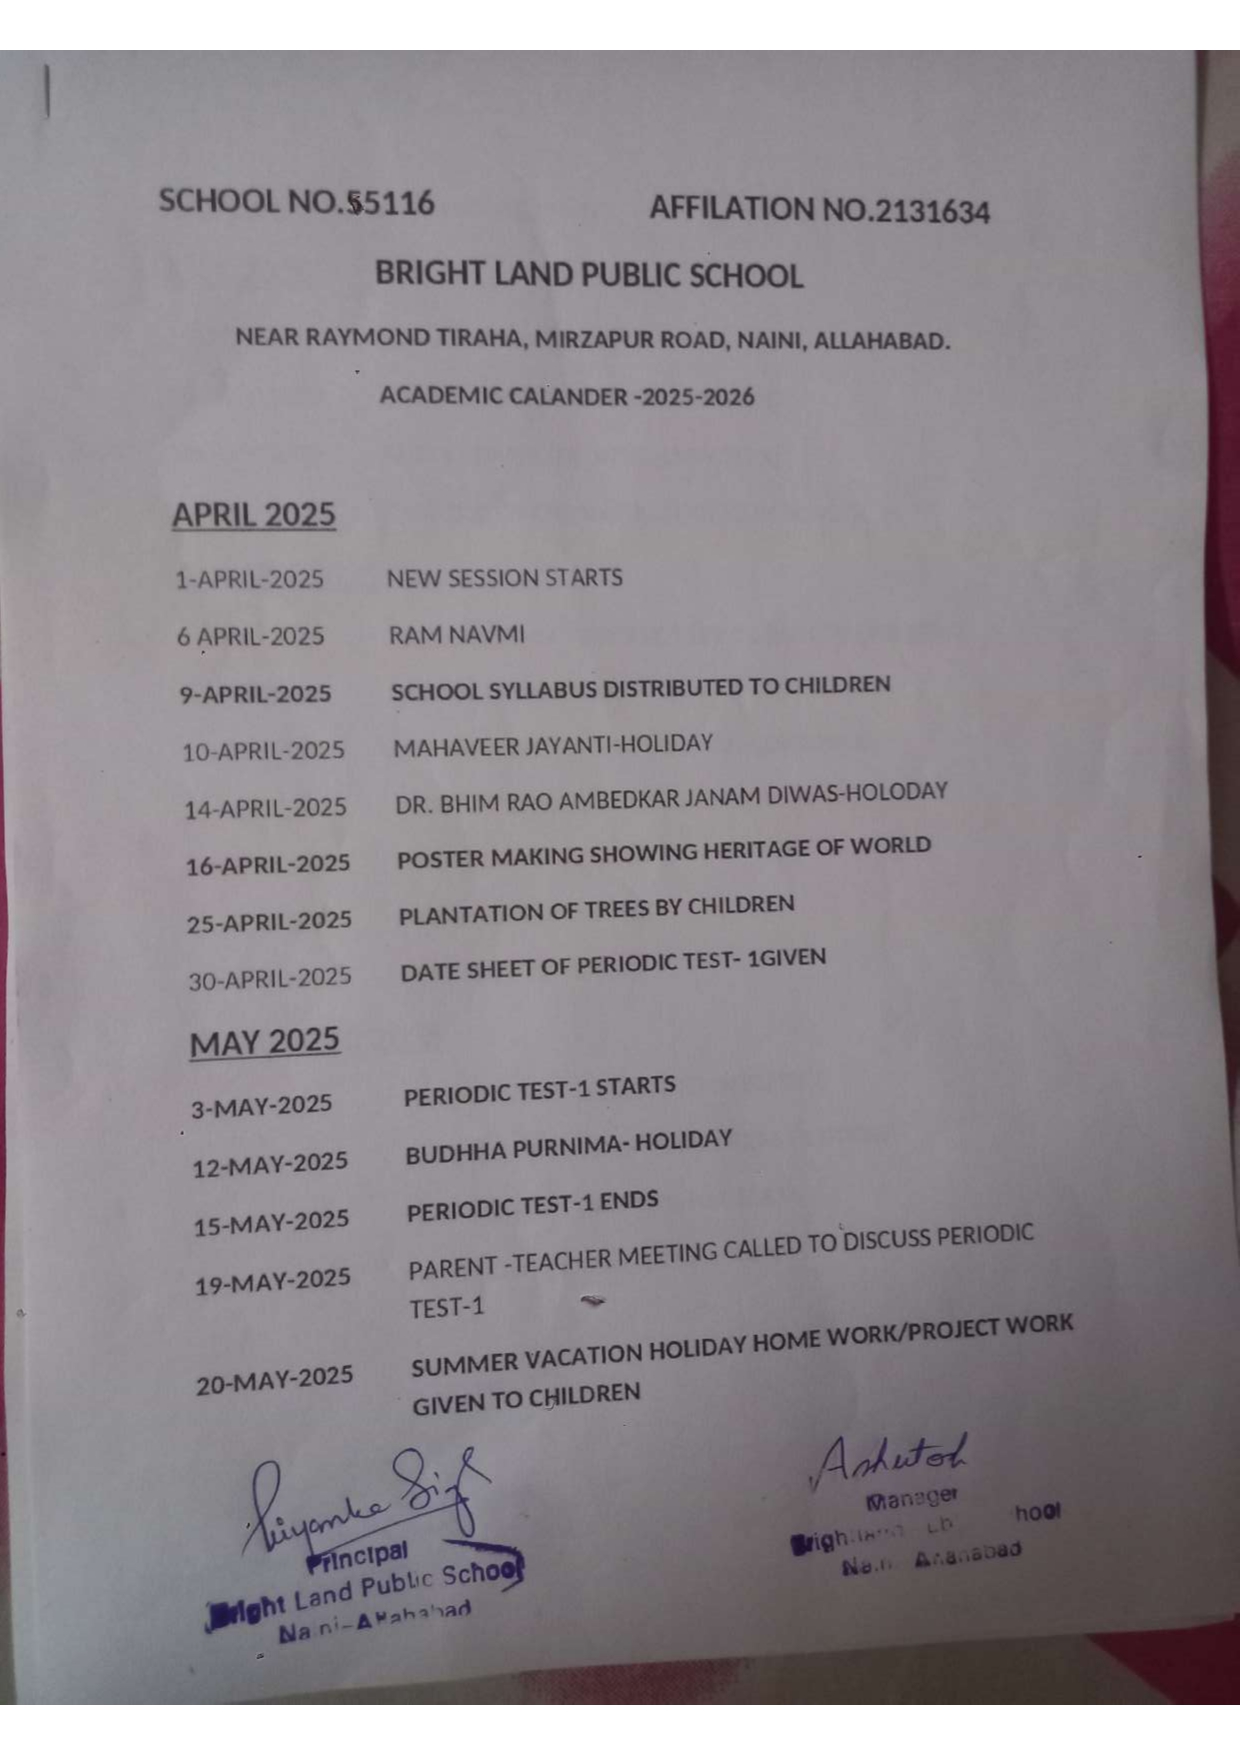 SCHOOL NO.55116 AFFILATION NO.2131634
BRIGHT LAND PUBLIC SCHOOL
NEAR RAYMOND TIRAHA, MIRZAPUR ROAD, NAINI, ALLAHABAD.
ACADEMIC CALANDER -2025-2026
APRIL 2025
1-APRIL-2025 NEW SESSION STARTS
6 APRIL-2025 RAM NAVMI
9-APRIL-2025 SCHOOL SYLLABUS DISTRIBUTED TO CHILDREN
10-APRIL-2025 MAHAVEER JAYANTI-HOLIDAY
14-APRIL-2025 DR. BHIM RAO AMBEDKAR JANAM DIWAS-HOLODAY
16-APRIL-2025 POSTER MAKING SHOWING HERITAGE OF WORLD
25-APRIL-2025 PLANTATION OF TREES BY CHILDREN
30-APRIL-2025 DATE SHEET OF PERIODIC TEST- 1GIVEN
MAY 2025
3-MAY-2025 PERIODIC TEST-1 STARTS
12-MAY-2025 BUDHHA PURNIMA- HOLIDAY
15-MAY-2025 PERIODIC TEST-1 ENDS
19-MAY-2025 PARENT -TEACHER MEETING CALLED TO DISCUSS PERIODIC
TEST-1
20-MAY-2025 SUMMER VACATION HOLIDAY HOME WORK/PROJECT WORK
GIVEN TO CHILDREN
Priyanka Singh
Principal
Bright Land Public School
Naini-Allahabad
Ashutosh
Manager